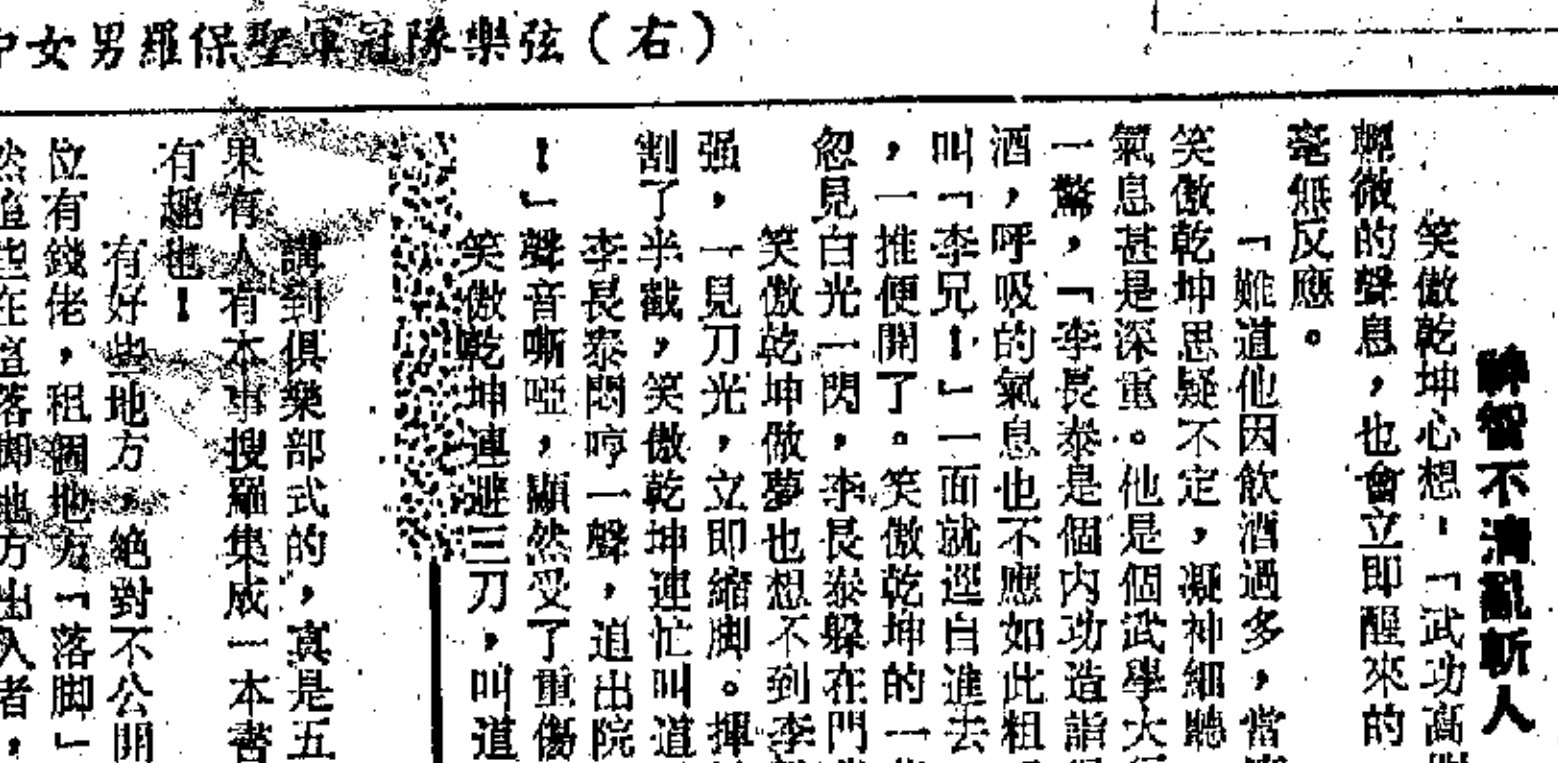 (右)弦樂隊冠軍聖保羅男女中
神智不清亂斬人
笑傲乾坤心想:「武功高
輕微的聲息,也會立即醒來的
毫無反應。
「難道他因飲酒過多,當
笑傲乾坤思疑不定,凝神細聽
氣息甚是深重。他是個武學大
一驚,「李長泰是個內功造詣
酒,呼吸的氣息也不應如此粗
叫「李兄!」一面就逕自進去
,一推便開了。笑傲乾坤的一
忽見白光一閃,李長泰躲在門
笑傲乾坤做夢也想不到李
强,一見刀光,立即縮脚。揮
割了半截,笑傲乾坤連忙叫道
李長泰悶哼一聲,追出院
!」聲音嘶啞,顯然受了重傷
笑傲乾坤連避三刀,叫道
講到俱樂部式的,真是五
果有人有本事搜羅集成一本書
有趣也!
有好些地方,絕對不公開
位有錢佬,租個地方「落脚」
然這些在這落脚地方出入者,